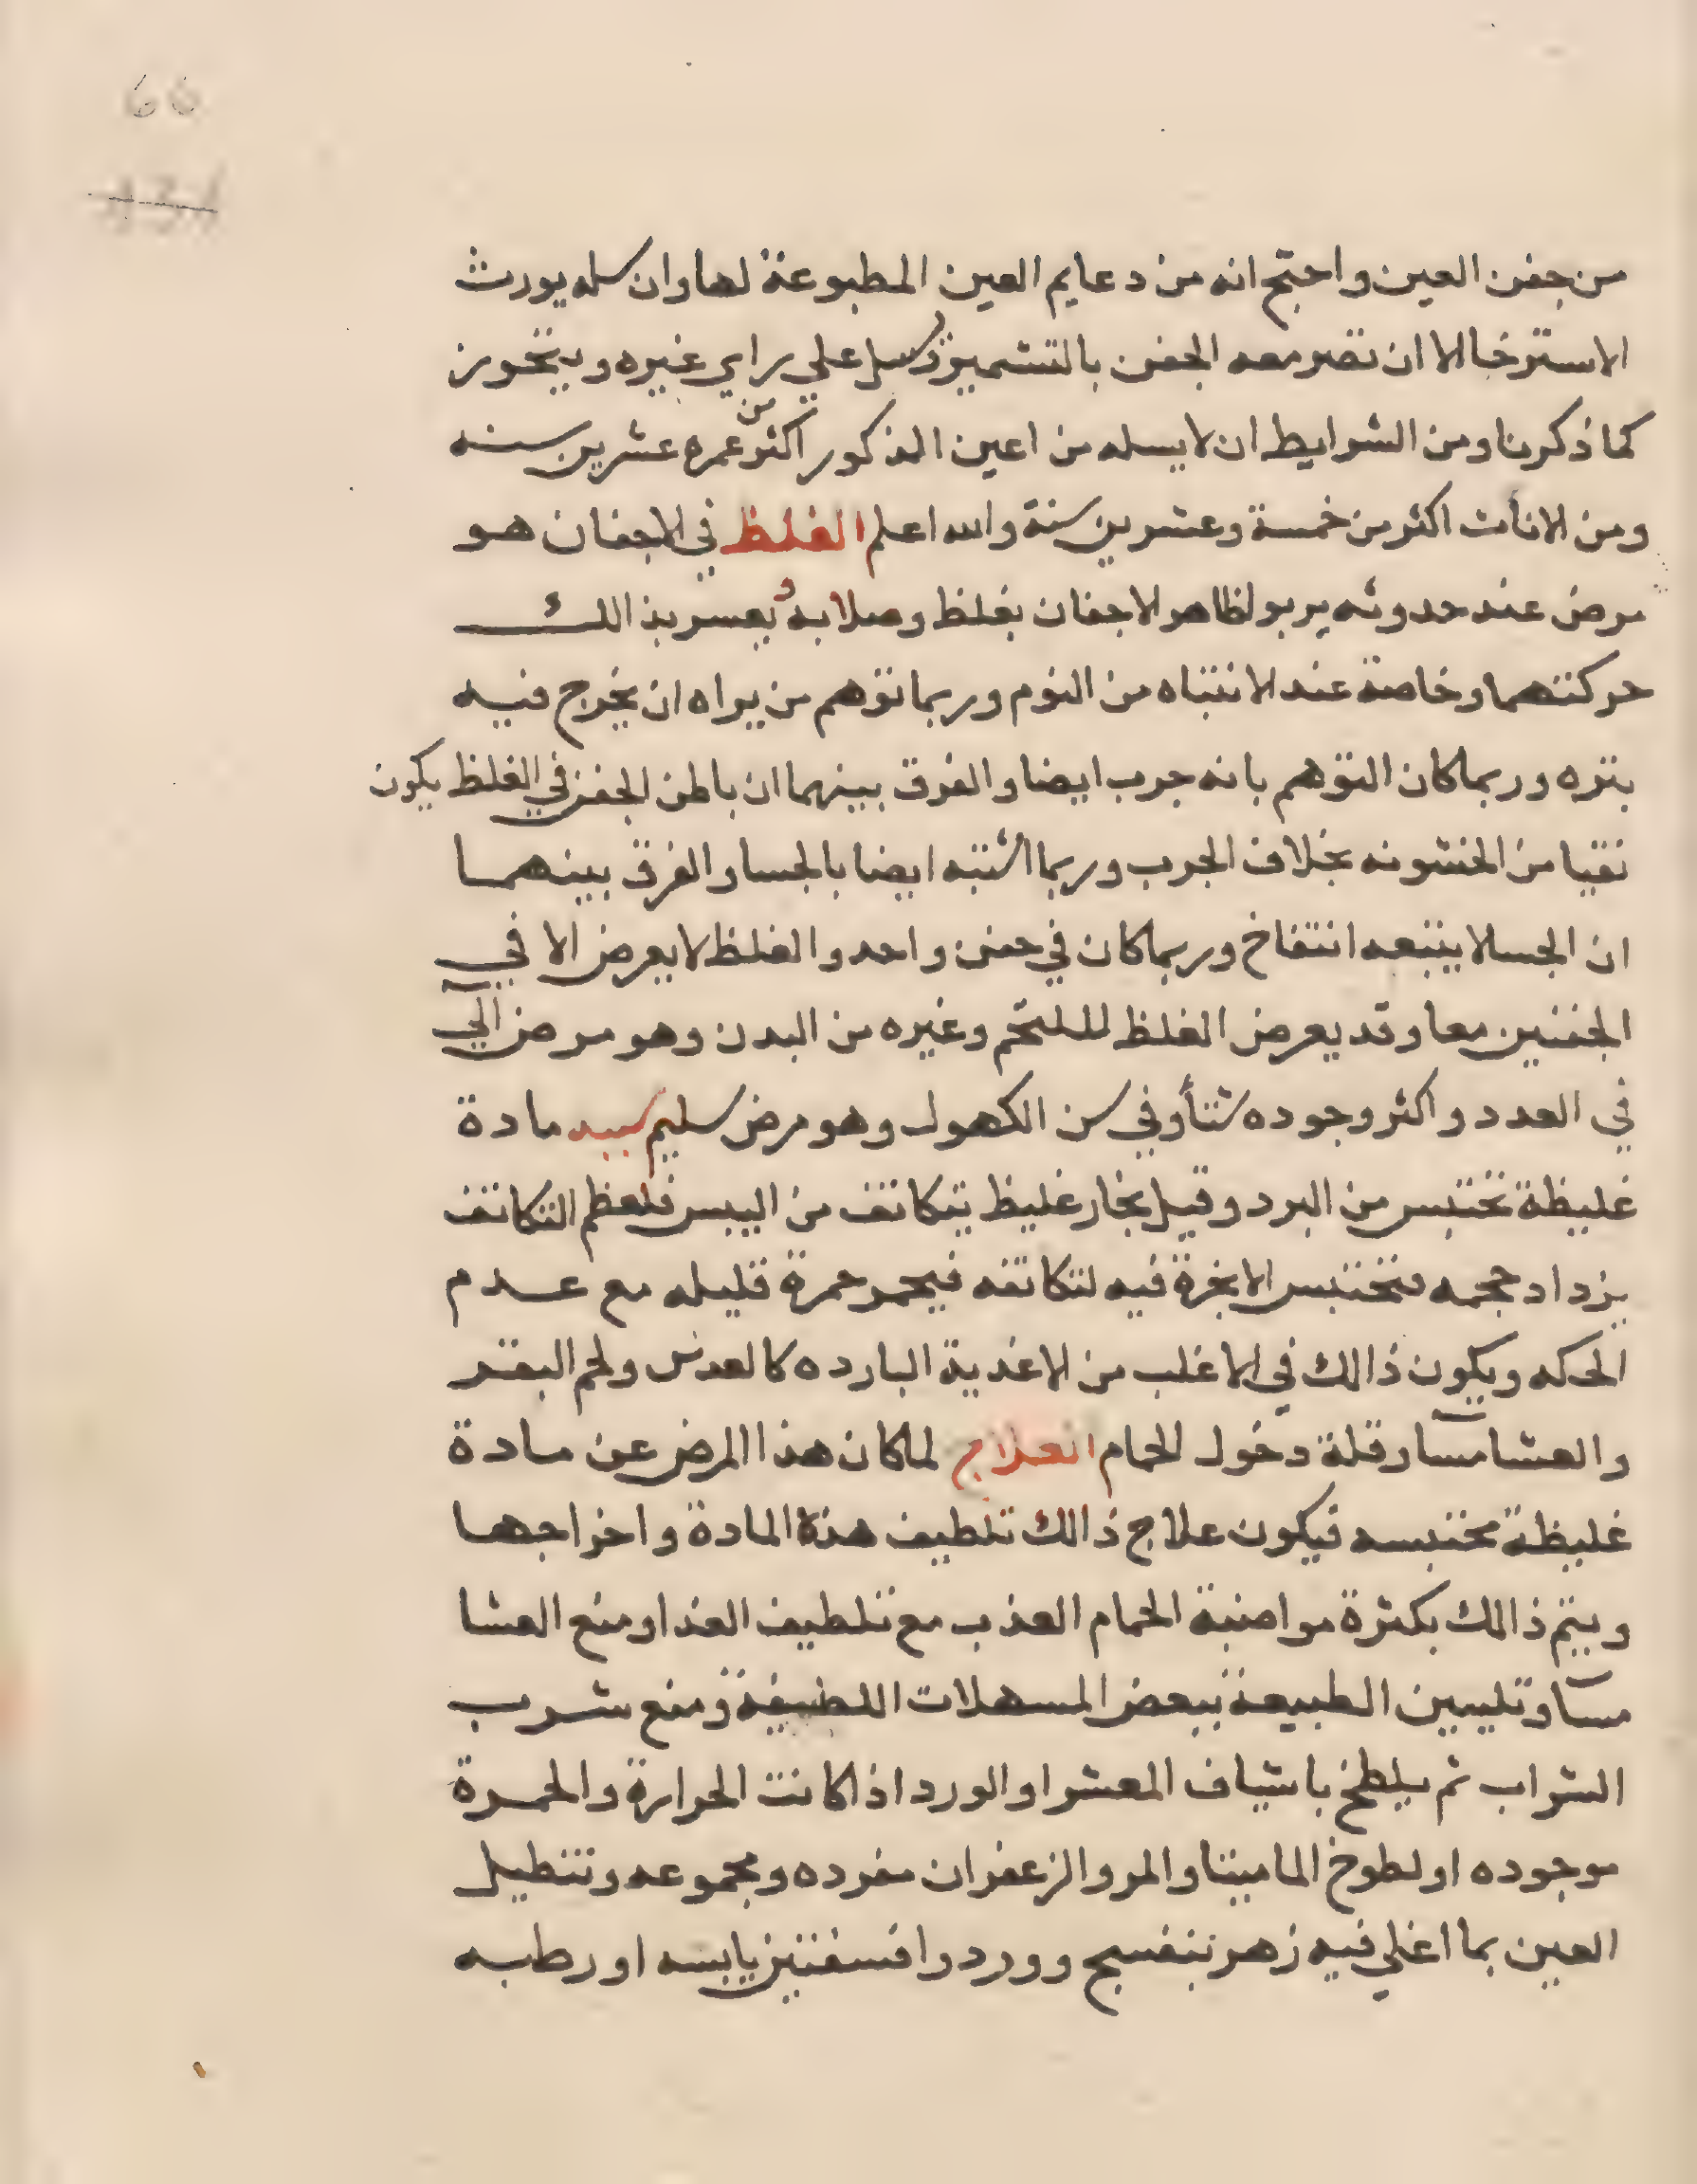 66
131
من جفن العين واحتج انه من دعايم العين المطبوعة لها وان سله يورث
الاسترخا الا ان تقصر معه الجفن بالتشمير وسل علي راي غيره ويتحرز
كما ذكرنا ومن الشرايط ان لا يسله من اعين الذكور اكثر من عمره عشرين سنه
ومن الاناث اكثر من خمسة وعشرين سنة والله اعلم الغلظ في الاجفان هو
مرض عند حدوثه يربو لظاهر الاجفان بغلظ وصلابة ويعسر بذالك
حركتهما وخاصة عند الانتباه من النوم وربما توهم من يراه ان يخرج فيه
بتره وربما كان التوهم بانه جرب ايضا والفرق بينهما ان باطن الجفن في الغلظ يكون
نقيا من الخشونه بخلاف الجرب وربما اشتبه ايضا بالجسا والفرق بينهما
ان الجسا لا يتبعه انتفاخ وربما كان في جفن واحد والغلظ لا يعرض الا في
الجفنين معا وقد يعرض الغلظ للملتحم وغيره من البدن وهو مرض الي
في العدد واكثر وجوده شتأ وفي سن الكهول وهو مرض سليم سببه مادة
غليظة تحتبس من البرد وقيل بخار غليظ يتكاثف من اليبس فلعظم التكاثف
يزداد حجمه فتحتبس الابخرة فيه لتكاثفه فيحمر حمرة قليله مع عدم
الحكه ويكون ذالك في الاغلب من الاغدية البارده كالعدس ولحم البقر
والعشا مسا وقلة دخول الحمام العلاج لما كان هذا المرض عن مادة
غليظة محتبسه فيكون علاج ذالك تلطيف هذه المادة واخراجها
ويتم ذالك بكثرة مواضبة الحمام العذب مع تلطيف الغذا ومنع العشا
مسآ وتليين الطبيعة ببعض المسهلات اللطيفة ومنع شرب
الشراب ثم يلطخ باشياف المعشرا والورد اذا كانت الحرارة والحمرة
موجوده او لطوخ الماميتا والمر والزعفران مفرده ومجموعه وتنطيل
العين بما اغلي فيه زهر بنفسج وورد وافسفنتين يابسه او رطبه